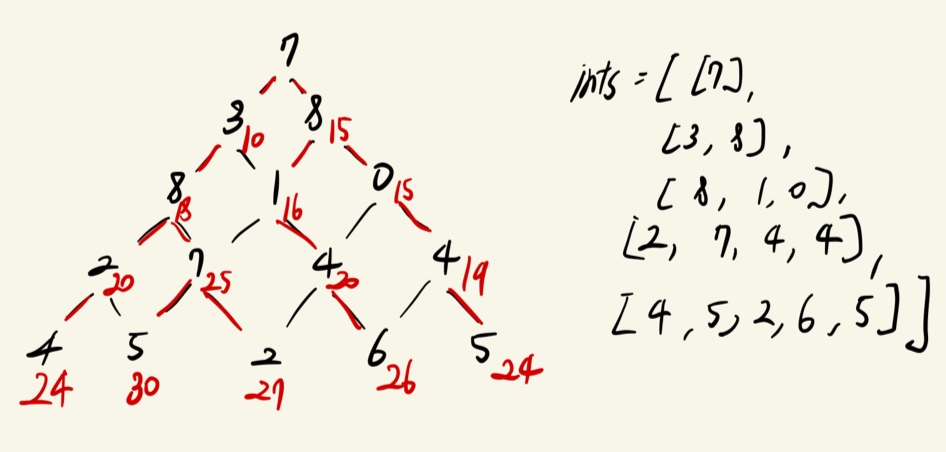 7
3 10 8 15
8 18 1 16 0 15
2 20 7 25 4 20 4 19
4 5 2 6 5
24 30 27 26 24
ints = [ [7],
[3, 8],
[8, 1, 0],
[2, 7, 4, 4],
[4, 5, 2, 6, 5]]